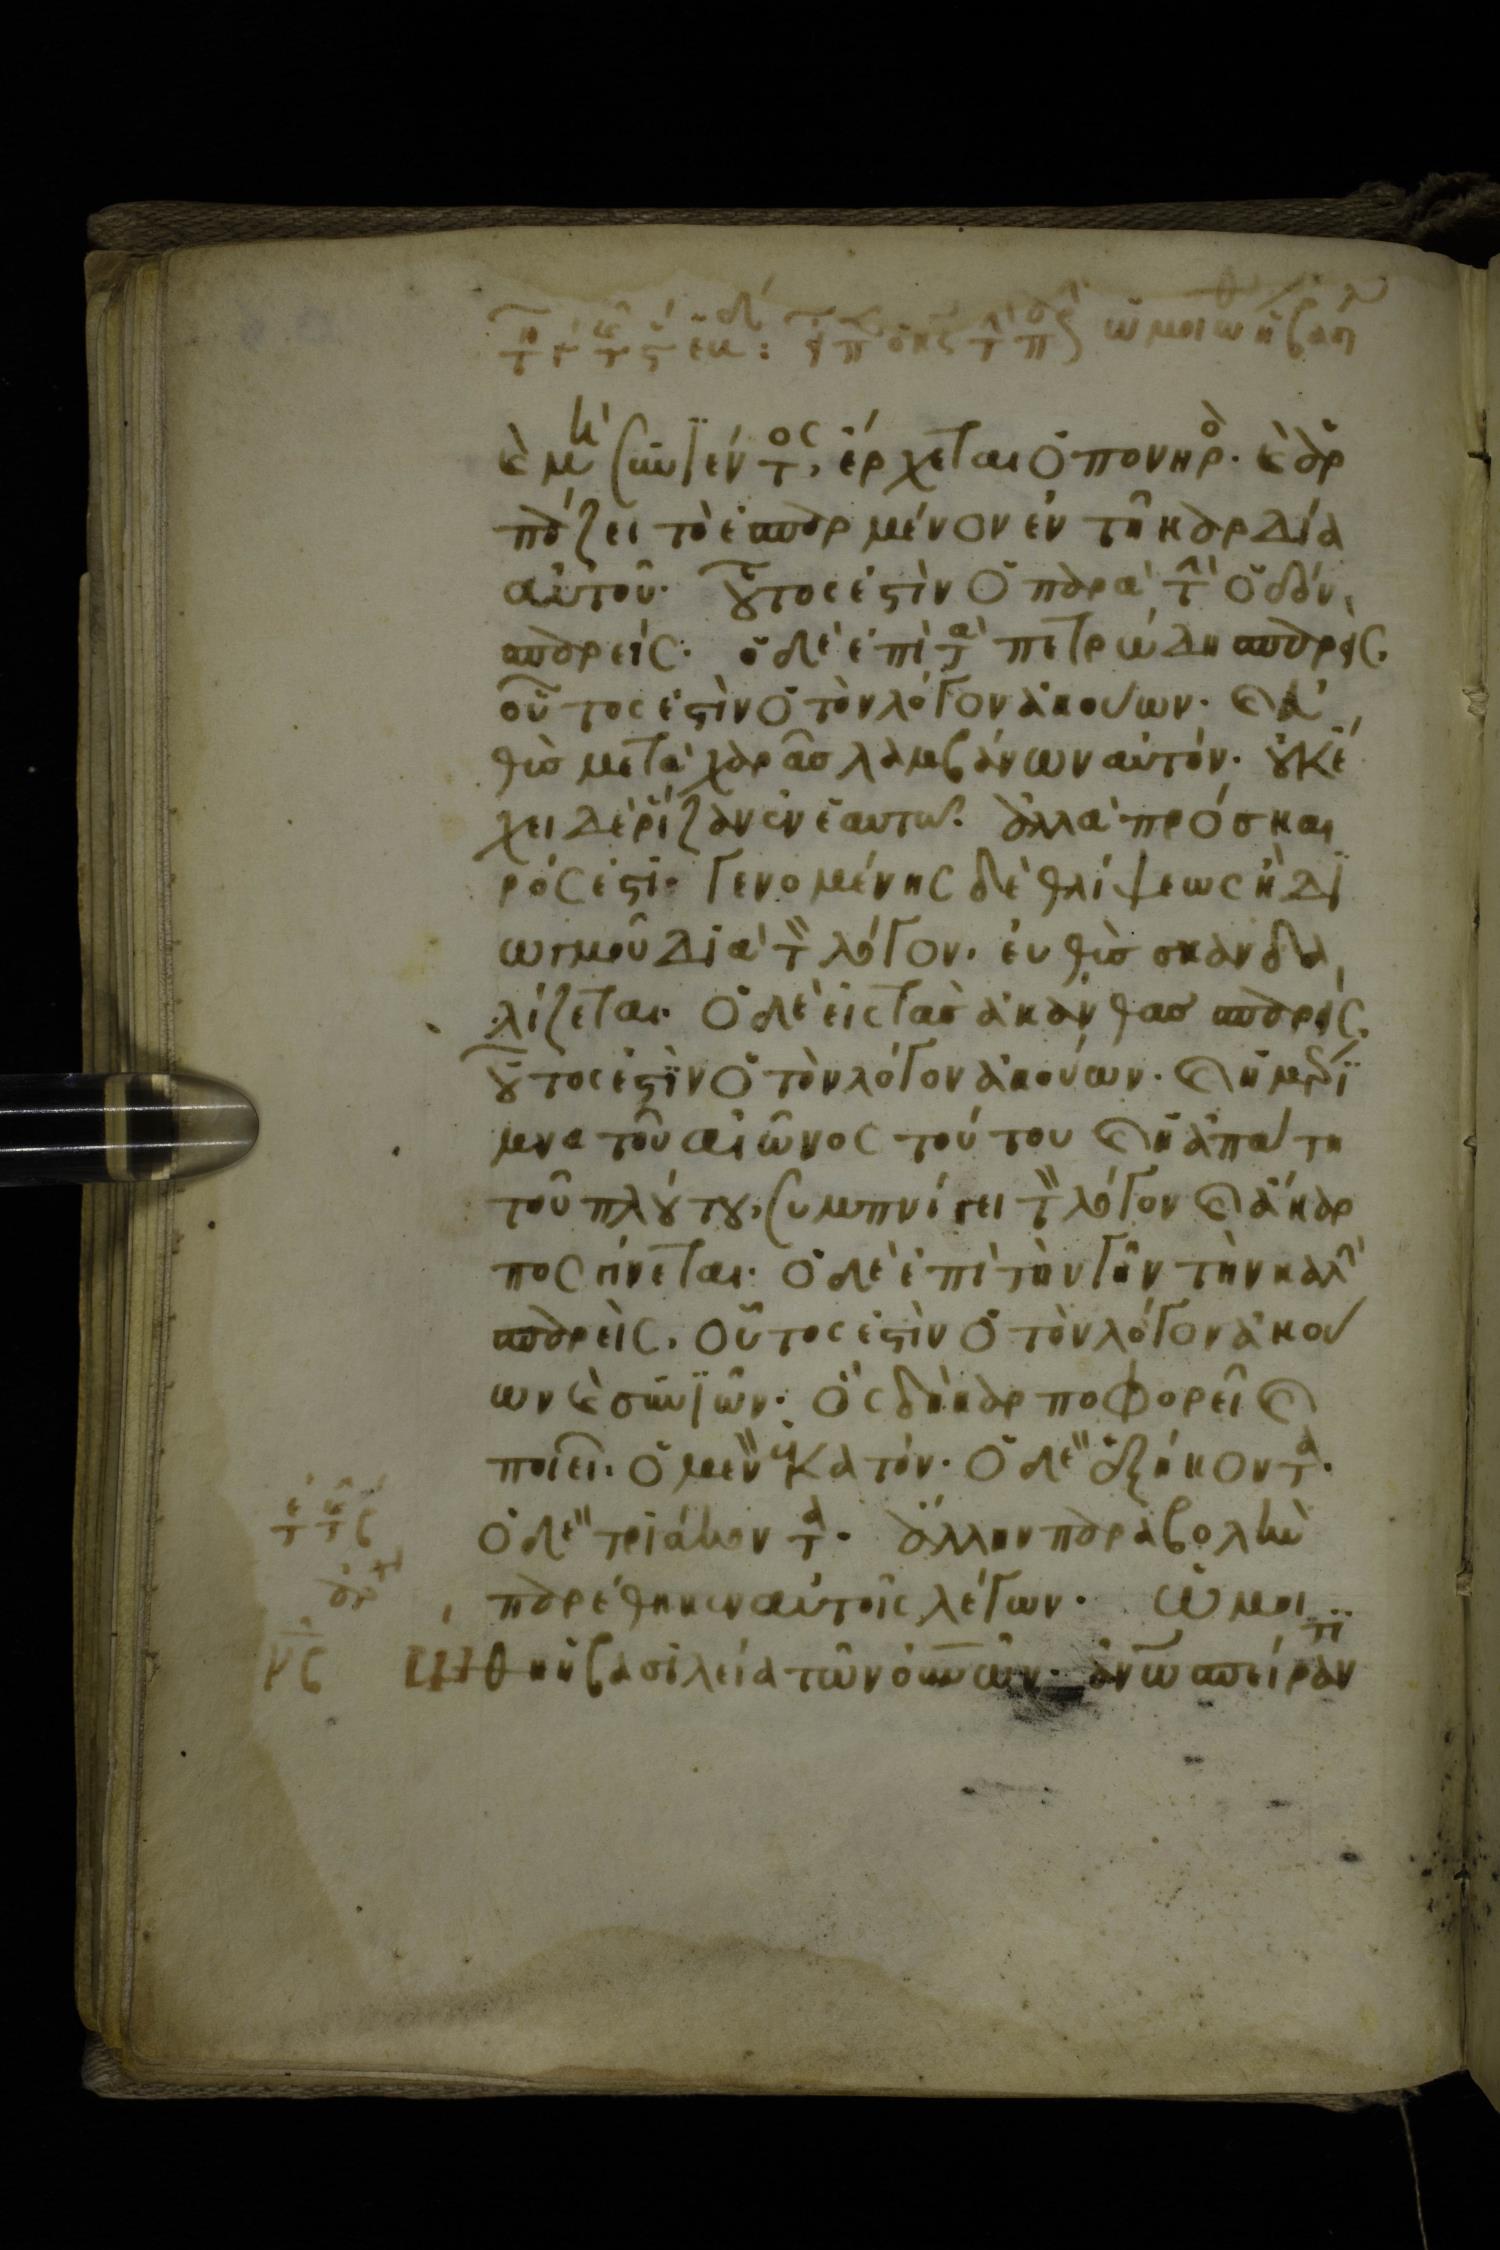 καὶ μὴ συνϊέντος, ἔρχεται ὁ πονηρὸς· καὶ ἁρ
πάζει τὸ ἐσπαρμένον ἐν τῆ καρδία
αὐτοῦ· οὗτος ἐστὶν ὁ παρὰ τὴν ὁδὸν
σπαρεὶς· ὁ δὲ ἐπὶ τὰ πετρώδη σπαρεὶς,
οὗτος ἐστὶν ὁ τὸν λόγον ἀκούων· καὶ εὐ
θὺς μετὰ χαρᾶς λαμβάνων αὐτόν· οὐκ ἔ
χει δὲ ῥίζαν ἐν ἑαυτῶ· ἀλλὰ πρόσκαι
ρός ἐστι· γενομένης δὲ θλίψεως ἢ δϊ
ωγμοῦ διὰ τὸν λόγον· εὐθὺς σκανδα
λίζεται· ὁ δὲ εἰς τὰς ἀκάνθας σπαρεὶς,
οὗτος ἐστὶν ὁ τὸν λόγον ἀκούων· καὶ ἡ μέρϊ
μνα τοῦ αἰῶνος τούτου καὶ ἡ ἀπάτη
τοῦ πλούτου, συμπνίγει τὸν λόγον καὶ ἄκαρ
πος γίνεται· ὁ δὲ ἐπὶ τὴν γῆν τὴν καλὴν
σπαρεὶς, οὗτος ἐστὶν ὁ τὸν λόγον ἀκού
ων καὶ συνϊῶν· ὃς δὴ καρποφορεῖ καὶ
ποιεῖ· ὁ μὲν ἑκατόν· ὁ δὲ ἑξήκοντα·
ὁ δὲ τριάκοντα· ἄλλην παραβολὴν
παρέθηκεν αὐτοῖς λέγων· ὡμοι
ώθη ἡ βασιλεία τῶν οὐνῶν· ἀνῶ σπείραντι